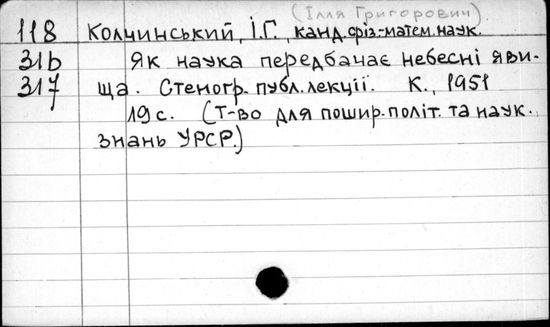 (Ілля Григорович)
118 Колчинський, І.Г., канд. фіз-матем. наук.
31b Як наука передбачає небесні яви-
317 ща. Стеногр. публ. лекції. К., 1951
19 с. (Т-во для пошир. політ. та наук.
знань УРСР.)